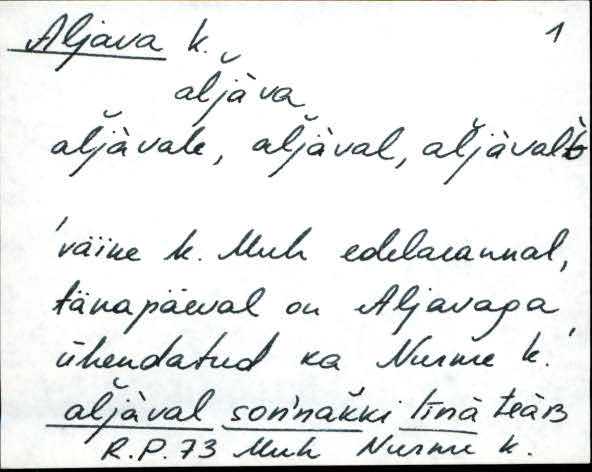 Aljava k. 1
al̆jàva
al̆jàvale, al̆jàval, al̆jàval̀t
'väike k. Muh edelarannal,
tänapäeval on Aljavaga
ühendatud ka Nurme k.'
al̆jàval son'nak̆ki tīnà
R.P.73 Muh Nurme k.